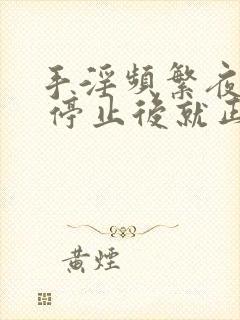 手淫頻繁夜
停止後就正
黄煙